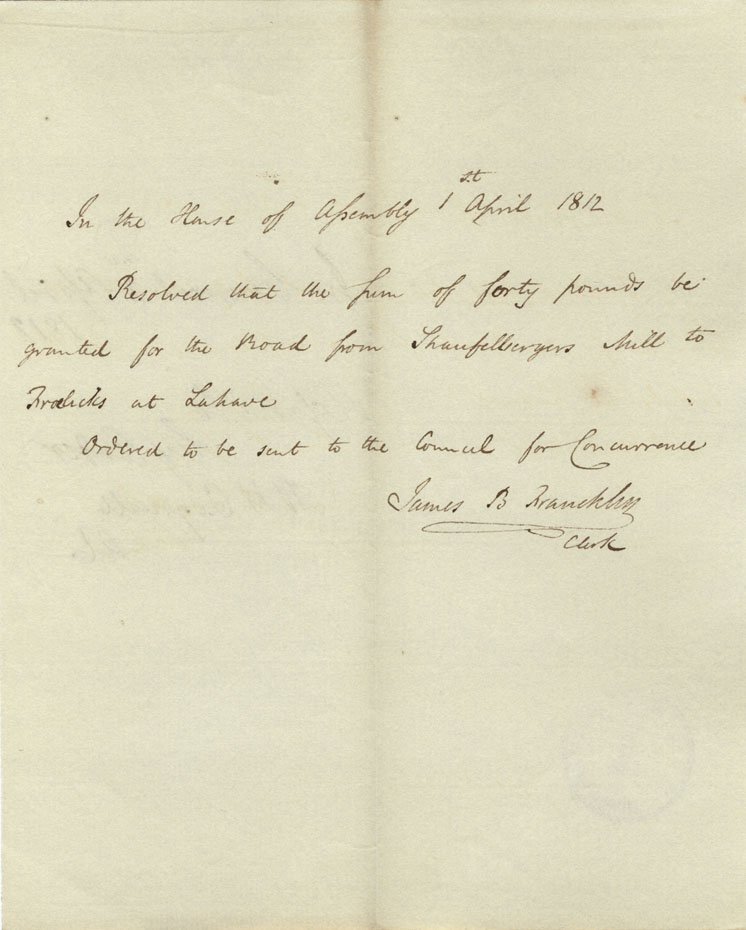 In the House of Assembly 1st April 1812
Resolved that the sum of forty pounds be
granted for the Road from Shaufelbergers Mill to
Fralicks at Lahave
Ordered to be sent to the Council for Concurrence
James B Francklin
Clerk